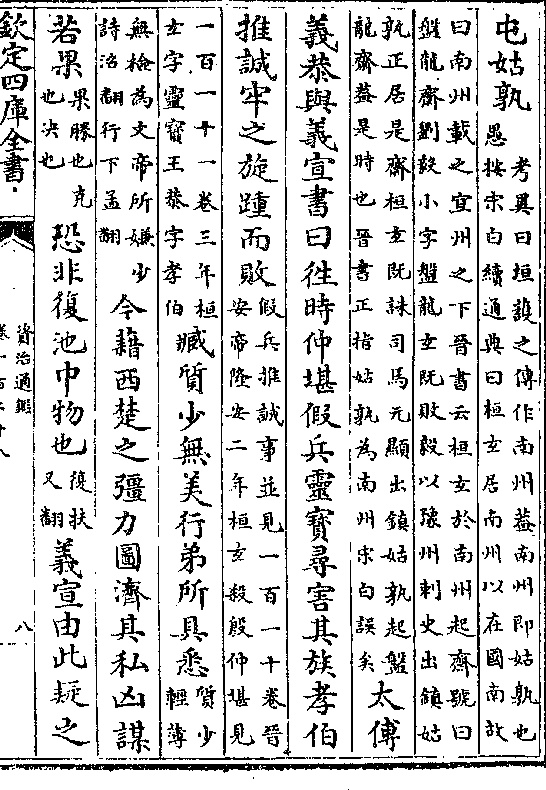 屯姑孰考異曰垣護之傳作南州葢南州即姑孰也
愚按宋白續通典曰桓玄居南州以在國南故
曰南州載之宣州之下晉書云桓玄於南州起齋號曰
盤龍齋劉毅小字盤龍玄既敗毅以豫州刺史出鎮姑
孰正居是齋桓玄既誅司馬元顯出鎮姑孰起盤
龍齋葢是時也晉書正指姑孰為南州宋白誤矣
太傅
義恭與義宣書曰徃時仲堪假兵靈寶尋害其族孝伯
推誠牢之旋踵而敗假兵推誠事並見一百一十卷晉
安帝隆安二年桓玄殺殷仲堪見
一百一十一卷三年桓
玄字靈寶王恭字孝伯
臧質少無美行弟所具悉質少
輕薄
無檢為文帝所嫌少
詩沼翻行下孟翻
今藉西楚之彊力圖濟其私凶謀
若果果勝也克
也决也
恐非復池中物也復扶
又翻
義宣由此疑之
欽定四庫全書
資治通鑑
八